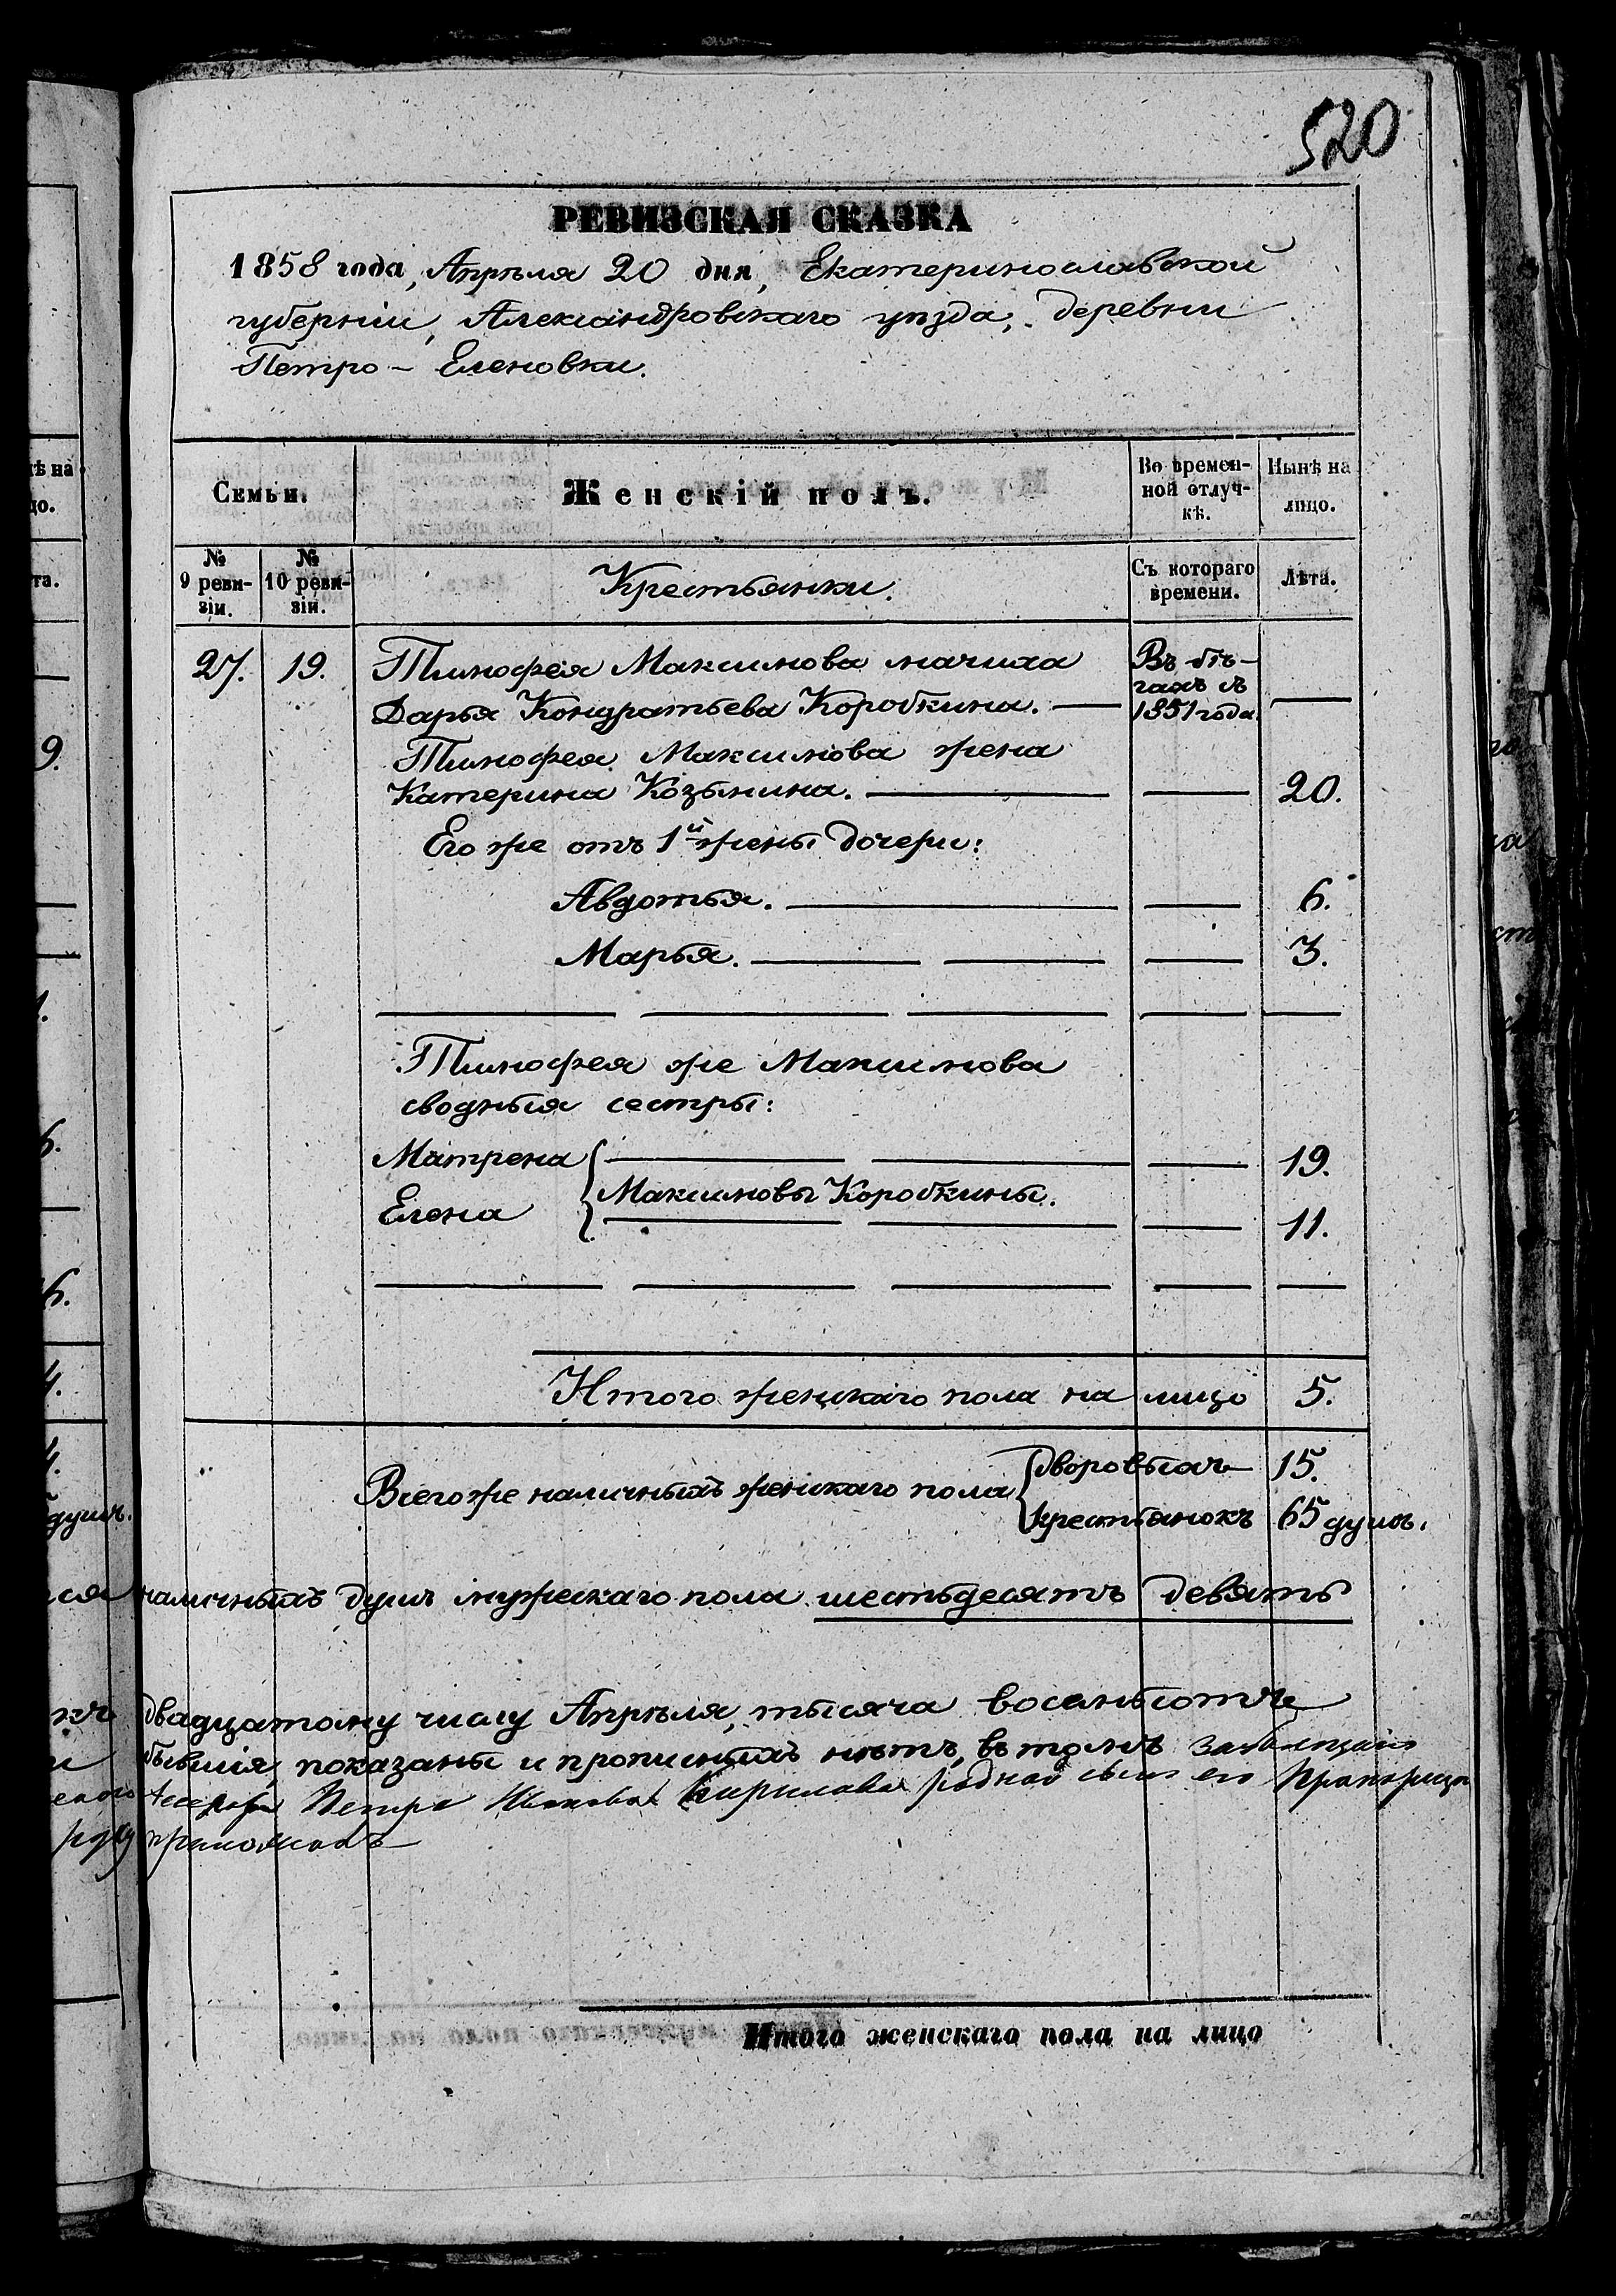 520
РЕВИЗСКАЯ СКАЗКА
1858 года, Апрѣля 20 дня, Екатеринославской
губерніи, Александровскаго уѣзда, деревни
Петро - Еленовки.
Семьи.
Женскій полъ.
Во времен-
ной отлуч-
кѣ.
Нынѣ на
лицо.
№
9 реви-
зіи.
№
10 реви-
зіи.
Крестьянки.
Съ котораго
времени.
Лѣта.
27. 19. Тимофея Максимова мачиха
Дарья Кондратьева Коробкина.
Въ бѣ-
гахъ съ
1851 года
Тимофея Максимова жена
Катерина Козьмина. 20.
Его же отъ 1й жены дочери:
Авдотья. 6.
Марья. 3.
Тимофея же Максимова
сводныя сестры:
Матрена 19.
Максимовы Коробкины.
Елена 11.
Итого женскаго пола на лицо 5.
Всего же наличныхъ женскаго пола
Дворовыхъ 15.
Крестьянокъ 65 душъ.
наличныхъ душъ мужескаго пола шестьдесятъ девять
двадцатому числу Апрѣля, тысяча восемьсотъ
бывшія, показаны и прописныхъ нѣтъ, въ томъ
Петра Кирилова родной сынъ его Прапорщикъ
приложилъ
Итого женскаго пола на лицо